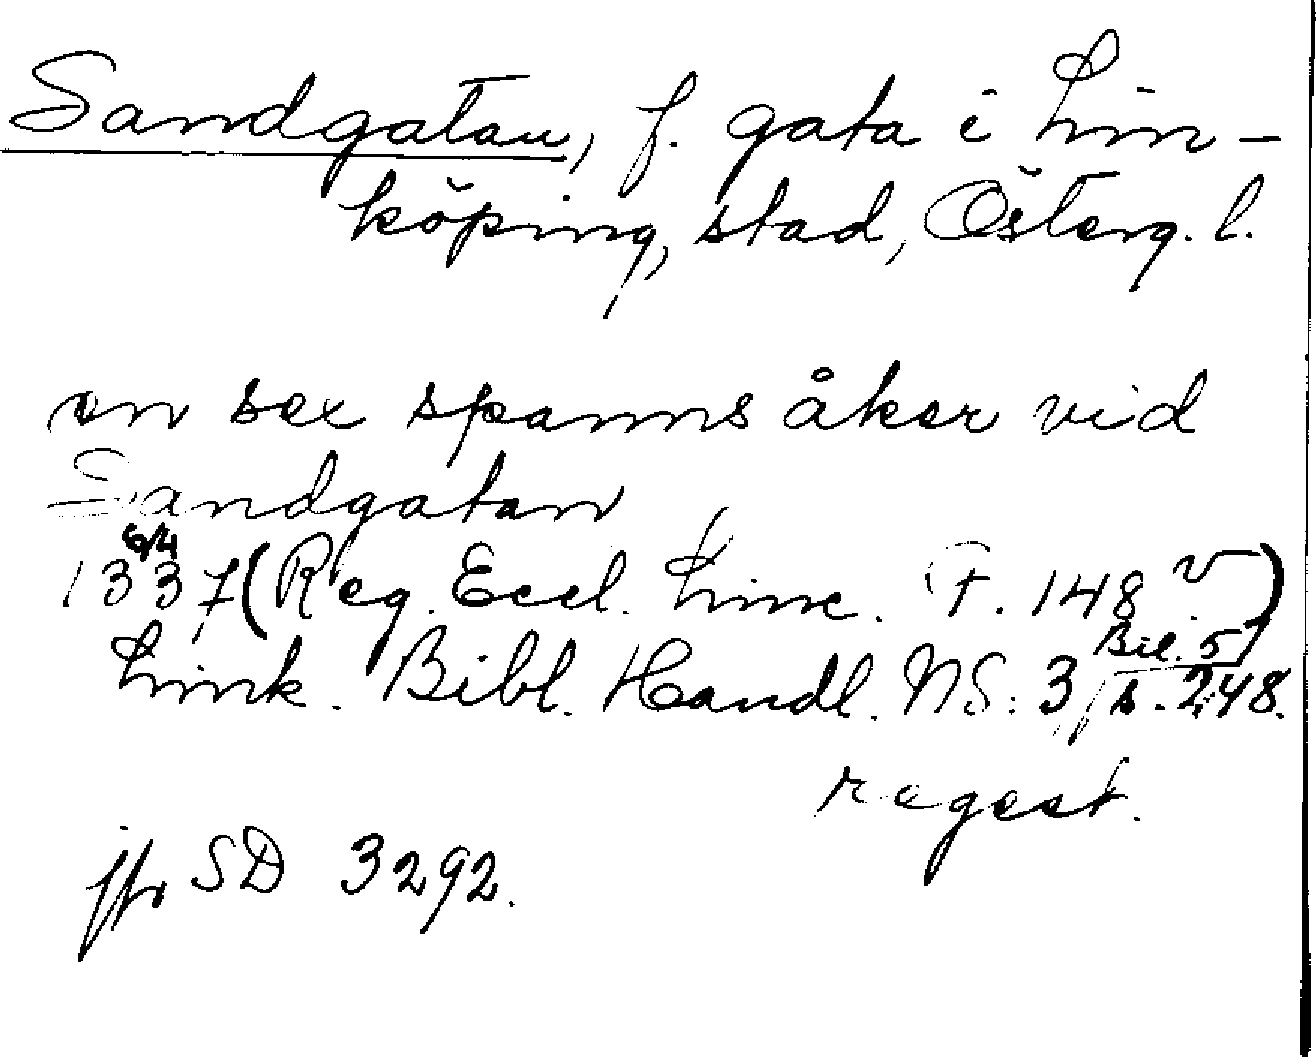 Sandgatan, f. gata i Lin-
köping, stad, Österg. l.
en sex spanns åker vid
Sandgatan
1337 6/4 (Reg. Eccl. Linc. F. 148 v)
Link. Bibl. Handl. NS: 3, Bil. 5, s. 248.
regest.
jfr SD 3292.